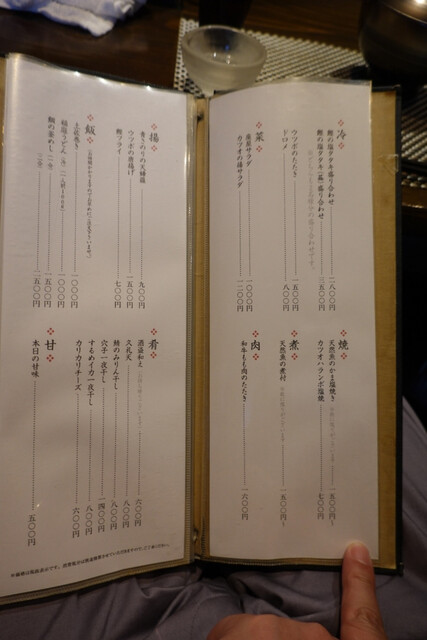 冷
鰹の塩タタキ盛り合わせ 二八〇〇円
鰹の塩タタキ
盛り合わせ 三五〇〇円
ウツボのたたき 一五〇〇円
ドロメ 八〇〇円
菜
座屋サラダ 一〇〇〇円
カツオの藁サラダ 一二〇〇円
焼
天然魚のかま塩焼き 一五〇〇円〜
カツオハランボ塩焼 七〇〇円
煮
天然魚の煮付 一五〇〇円〜
肉
和牛もも肉のたたき 一六〇〇円
揚
青さのりの天婦羅 九〇〇円
ウツボの唐揚げ 一五〇〇円
鯨フライ 七〇〇円
飯
土佐巻き 一〇〇〇円
稲庭うどん 一〇〇〇円
鯛の釜めし 一合 一五〇〇円
二合 二五〇〇円
肴
酒盗和え 六〇〇円
久礼天 八〇〇円
鯖のみりん干し 八〇〇円
穴子一夜干し 一四〇〇円
するめイカ一夜干し 八〇〇円
カリカリチーズ 六〇〇円
甘
本日の甘味 五〇〇円